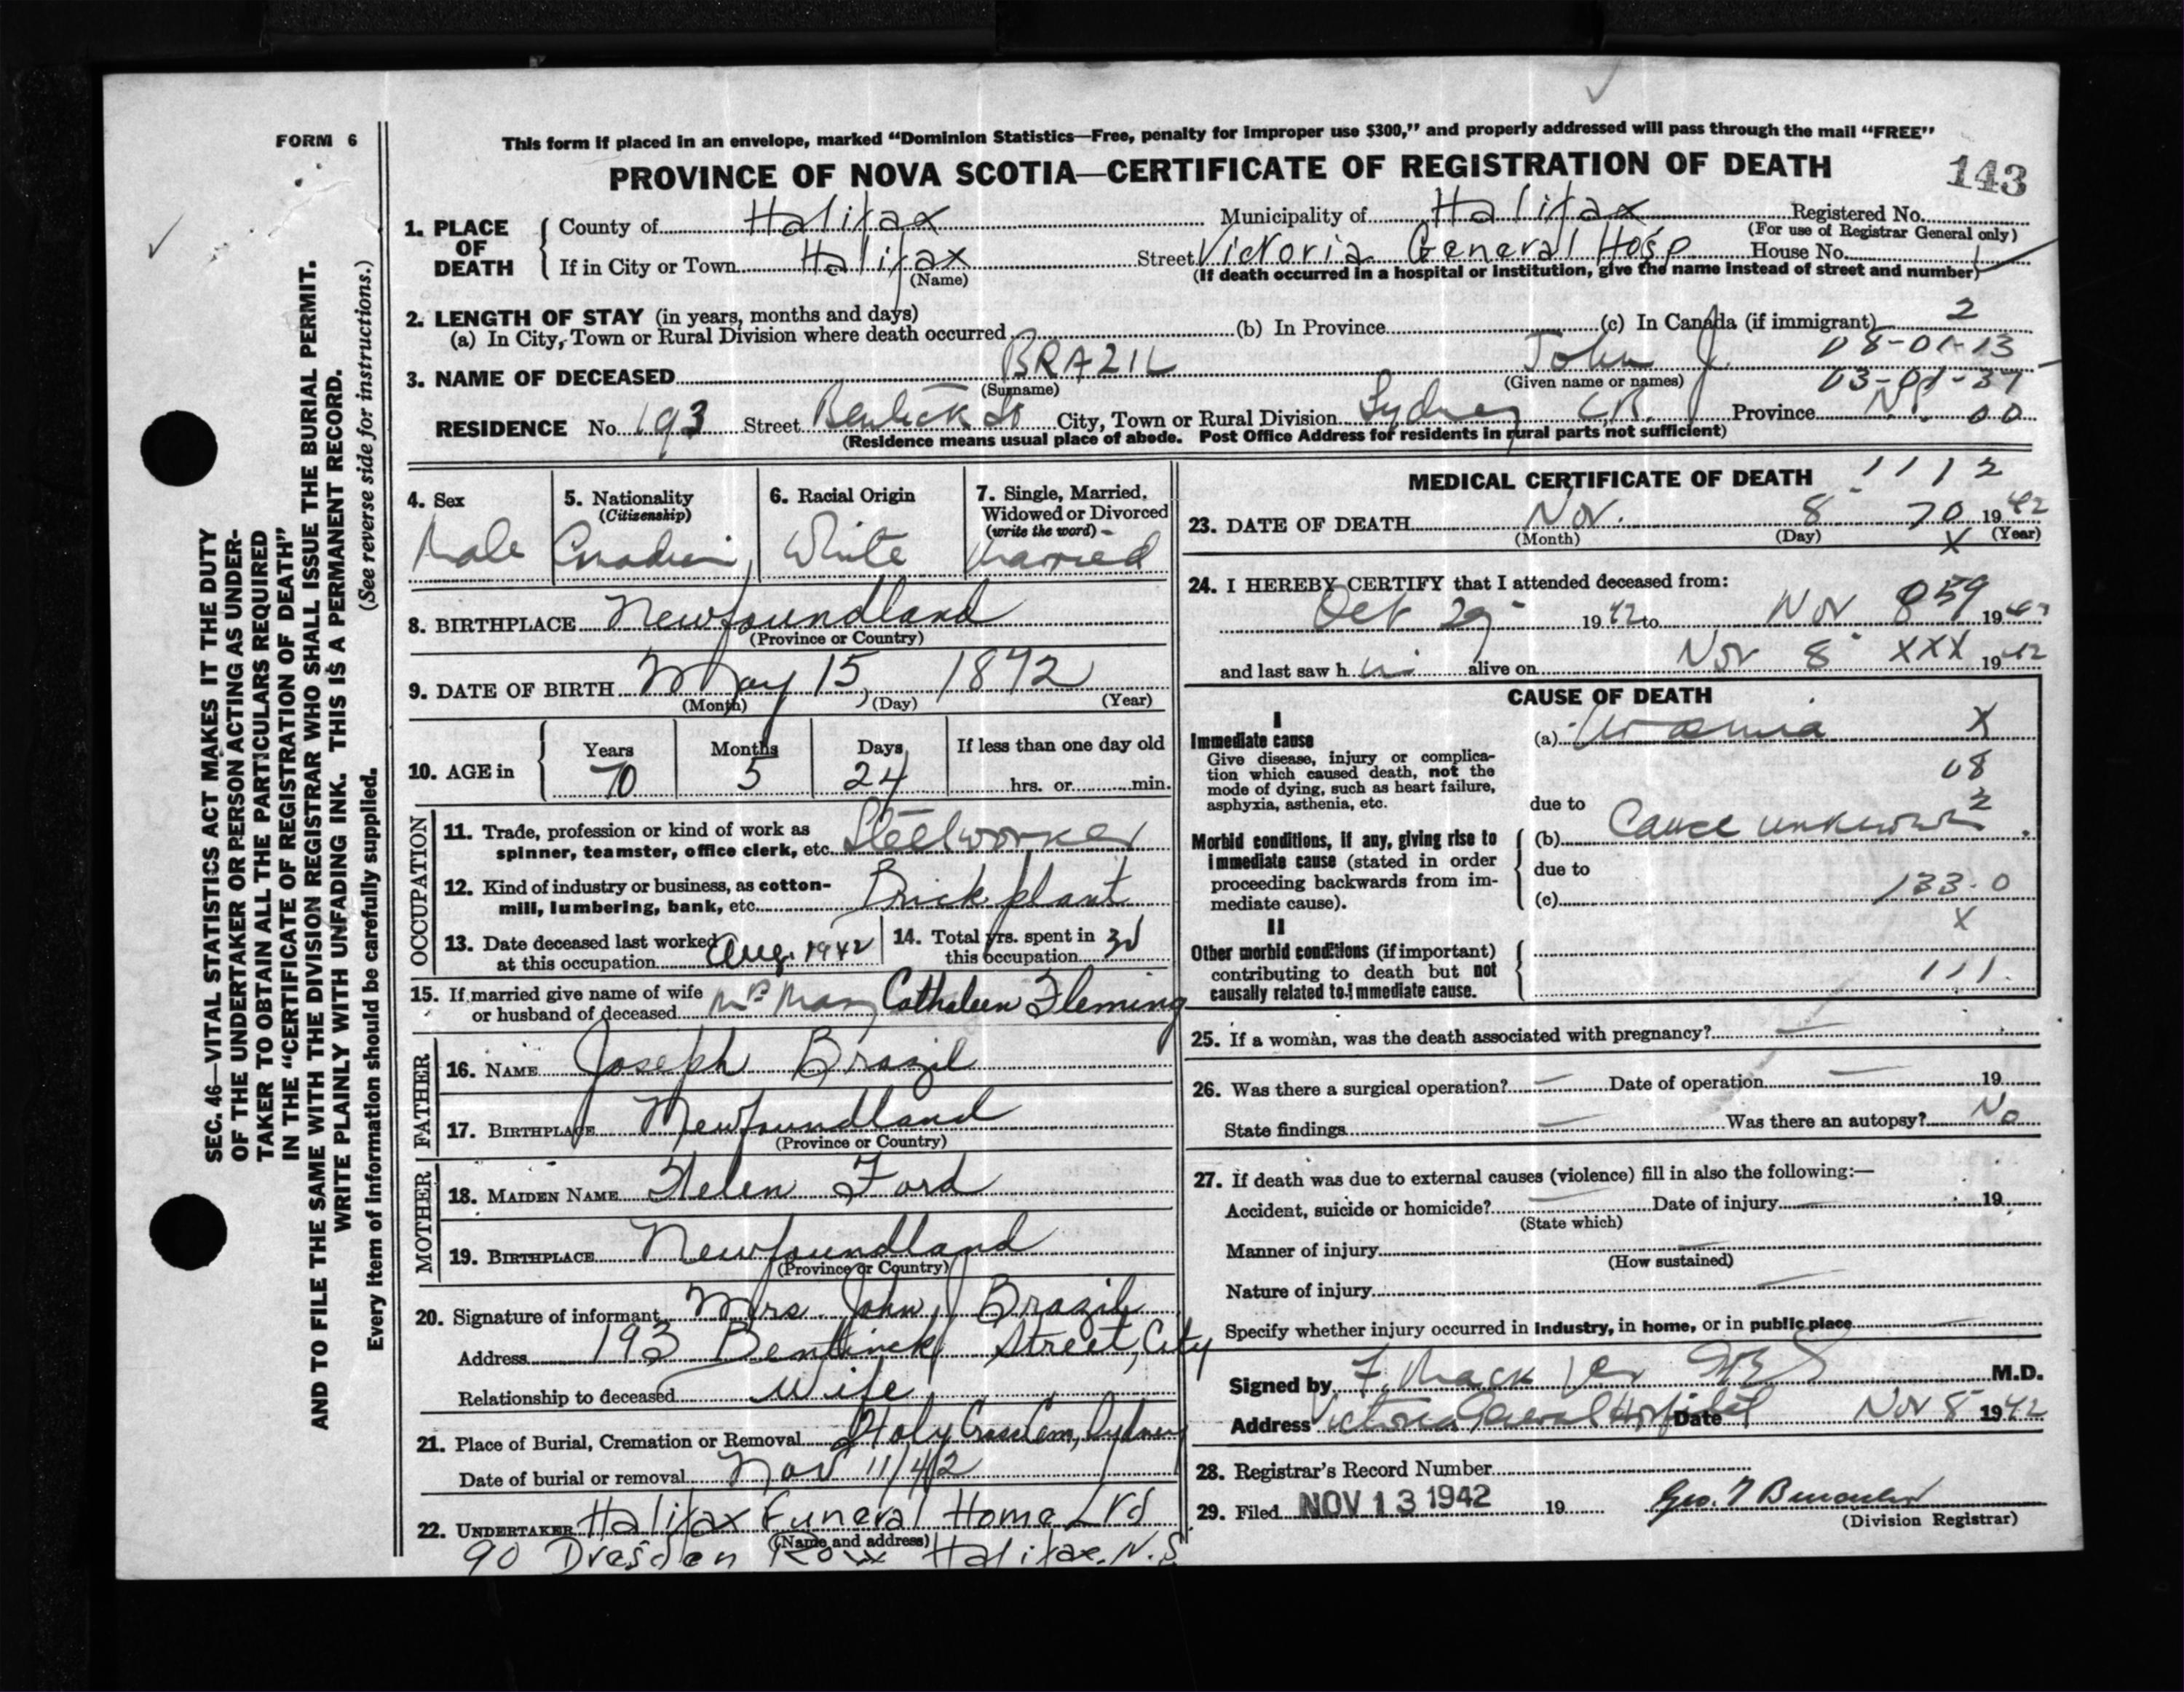 FORM 6
This form if placed in an envelope, marked “Dominion Statistics—Free, penalty for improper use $300,” and properly addressed will pass through the mail “FREE”
PROVINCE OF NOVA SCOTIA—CERTIFICATE OF REGISTRATION OF DEATH
143
1. PLACE OF DEATH
County of Halifax Municipality of Halifax Registered No.
(For use of Registrar General only)
If in City or Town Halifax Street Victoria General Hosp House No.
(Name) (If death occurred in a hospital or institution, give the name instead of street and number)
2. LENGTH OF STAY (in years, months and days)
(a) In City, Town or Rural Division where death occurred (b) In Province (c) In Canada (if immigrant) 2
08-01-13
3. NAME OF DECEASED BRAZIL John J.
(Surname) (Given name or names) 03-01-37
RESIDENCE No. 193 Street City, Town or Rural Division Sydney C.B. Province N.S. 00
(Residence means usual place of abode. Post Office Address for residents in rural parts not sufficient)
4. Sex Male
5. Nationality (Citizenship) Canadian
6. Racial Origin White
7. Single, Married, Widowed or Divorced (write the word) Married
8. BIRTHPLACE Newfoundland
(Province or Country)
9. DATE OF BIRTH May 15, 1872
(Month) (Day) (Year)
10. AGE in Years 70 Months 5 Days 24 If less than one day old hrs. or min.
OCCUPATION
11. Trade, profession or kind of work as spinner, teamster, office clerk, etc. Steelworker
12. Kind of industry or business, as cotton-mill, lumbering, bank, etc. Brick plant
13. Date deceased last worked at this occupation Aug. 1942
14. Total yrs. spent in this occupation
15. If married give name of wife or husband of deceased Mrs Mary Cathaleen Fleming
FATHER
16. NAME Joseph Brazil
17. BIRTHPLACE Newfoundland
(Province or Country)
MOTHER
18. MAIDEN NAME Helen Ford
19. BIRTHPLACE Newfoundland
(Province or Country)
20. Signature of informant Mrs. John J Brazil
Address 193 Bentinck Street, City
Relationship to deceased Wife
21. Place of Burial, Cremation or Removal Holy Cross Cem, Sydney
Date of burial or removal Nov 11/42
22. UNDERTAKER Halifax Funeral Home Ltd
(Name and address)
90 Dresden Row Halifax, N.S.
MEDICAL CERTIFICATE OF DEATH 1112
23. DATE OF DEATH Nov. 8 70 1942
(Month) (Day) X (Year)
24. I HEREBY CERTIFY that I attended deceased from:
Oct 29 1942 to Nov 8 059 1942
and last saw him alive on Nov 8 XXX 1942
CAUSE OF DEATH
I
Immediate cause (a) Uraemia X
Give disease, injury or complication which caused death, not the mode of dying, such as heart failure, asphyxia, asthenia, etc.
08
due to 2
Morbid conditions, if any, giving rise to immediate cause (stated in order proceeding backwards from immediate cause).
(b) Cause unknown
due to
(c) 133.0
X
II
Other morbid conditions (if important) contributing to death but not causally related to immediate cause.
111.
25. If a woman, was the death associated with pregnancy? —
26. Was there a surgical operation? — Date of operation — 19
State findings — Was there an autopsy? No
27. If death was due to external causes (violence) fill in also the following:—
Accident, suicide or homicide? Date of injury 19
(State which)
Manner of injury
(How sustained)
Nature of injury
Specify whether injury occurred in industry, in home, or in public place
Signed by M.D.
Address Victoria General Hospital Date Nov 8 1942
28. Registrar's Record Number
29. Filed NOV 13 1942 19
(Division Registrar)
SEC. 46—VITAL STATISTICS ACT MAKES IT THE DUTY
OF THE UNDERTAKER OR PERSON ACTING AS UNDER-
TAKER TO OBTAIN ALL THE PARTICULARS REQUIRED
IN THE “CERTIFICATE OF REGISTRATION OF DEATH”
AND TO FILE THE SAME WITH THE DIVISION REGISTRAR WHO SHALL ISSUE THE BURIAL PERMIT.
WRITE PLAINLY WITH UNFADING INK. THIS IS A PERMANENT RECORD.
Every item of information should be carefully supplied. (See reverse side for instructions.)